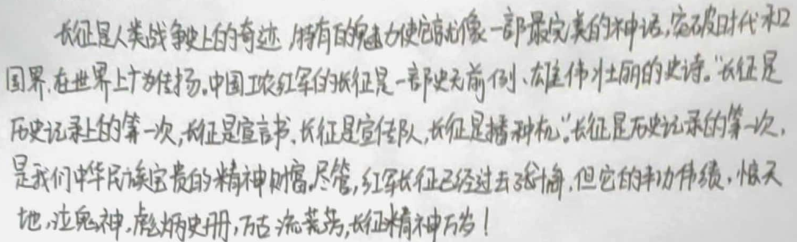 长征是人类战争史上的奇迹,特有的魅力使它就像一部最完美的神话,突破时代和
国界,在世界上广为传扬。中国工农红军的长征是一部史无前例、雄伟壮丽的史诗。"长征是
历史记录上的第一次,长征是宣言书,长征是宣传队,长征是播种机。"长征是历史记录的第一次,
是我们中华民族宝贵的精神财富。尽管,红军长征已经过去,但它的丰功伟绩,惊天
地,泣鬼神,彪炳史册,万古流芳,长征精神万岁!